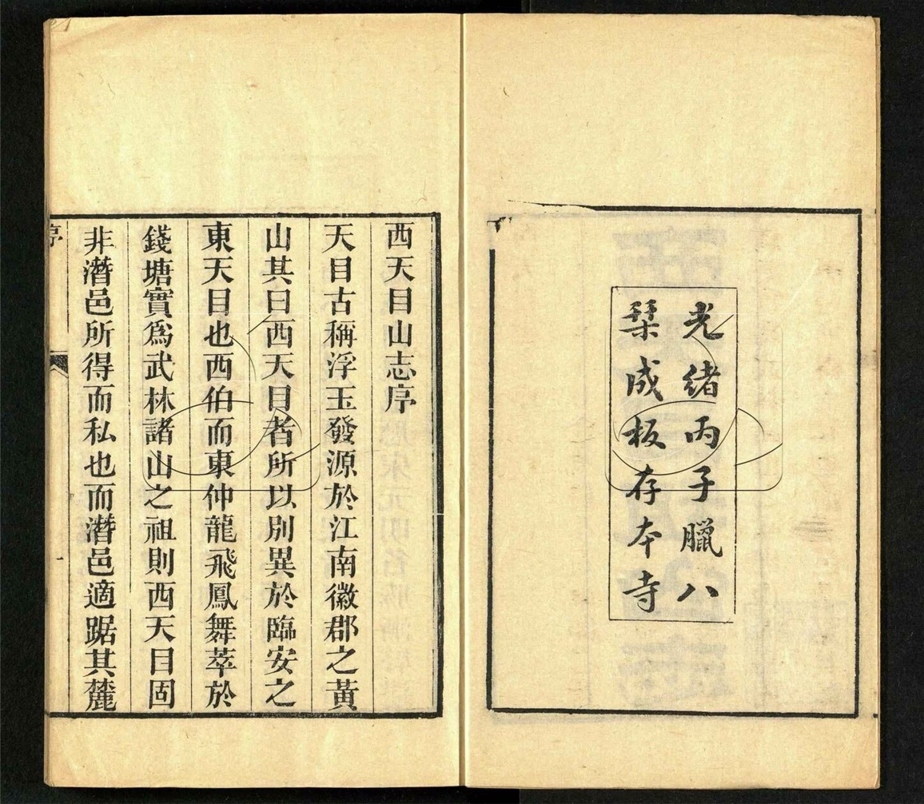 光緒丙子臘八
栞成板存本寺
西天目山志序
天目古稱浮玉發源於江南徽郡之黃
山其曰西天目者所以別異於臨安之
東天目也西伯而東仲龍飛鳳舞萃於
錢塘實爲武林諸山之祖則西天目固
非濳邑所得而私也而濳邑適踞其麓
序
一